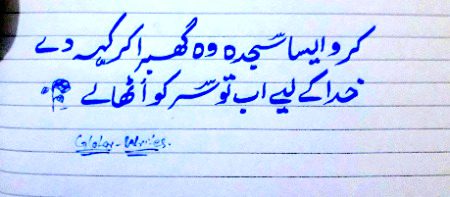 کرو ایسا سجدہ وہ گھبرا کر کہہ دے
خدا کے لیے اب تو سر کو اُٹھالے
Writes.